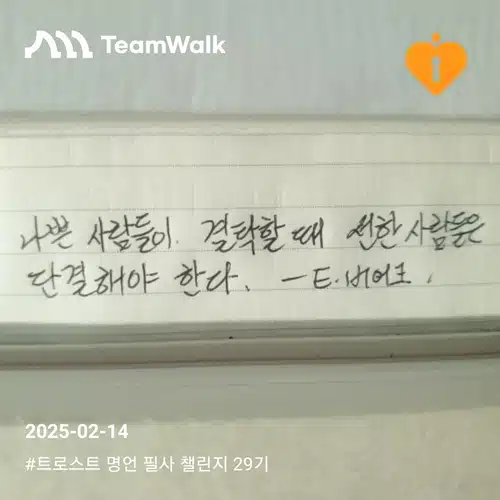 TeamWalk
나쁜 사람들이. 결탁할 때 선한 사람들은
단결해야 한다. - E. 버어크.
2025-02-14
#트로스트 명언 필사 챌린지 29기